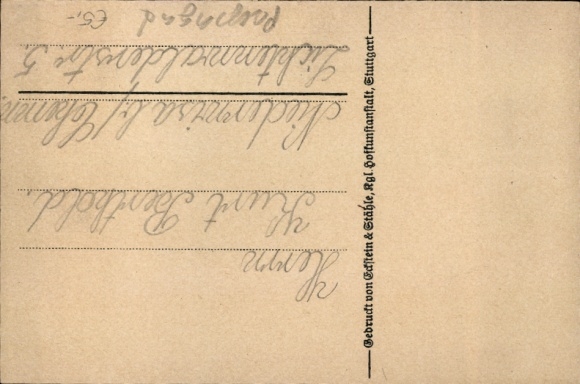 Herrn
Kurt Berthold.
Niederwiesa b/ Chemn.
Lichtenwalderstr. 5.
Propaganda
£5,-
Gedruckt von Eckstein & Stähle, Kgl. Hofkunstanstalt, Stuttgart